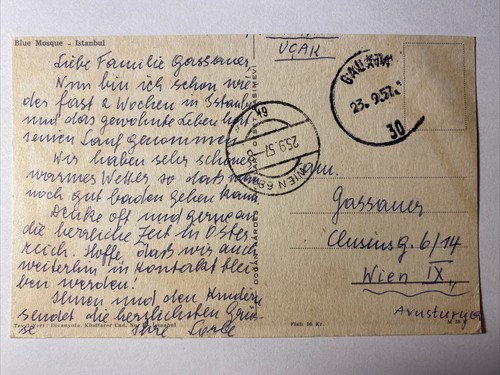 Blue Mosque - Istanbul
UÇAK
Liebe Familie Gassauer,
Nun bin ich schon wie
der fast 2 Wochen in Istanbul
und das gewohnte Leben hat
seinen Lauf genommen.
Wir haben sehr schönes
warmes Wetter so daß man
noch gut baden gehen kann.
Denke oft und gerne an
die herrliche Zeit in Öster-
reich. Hoffe, daß wir auch
weiterhin in Kontakt blei
ben werden!
Ihnen und den Kindern
sendet die herzlichsten Grüs-
se Ihre
Istanbul
GALATA
23.9.57
30
49
25.9.57
WIEN
DOĞAN KARDEŞ
BASIMEVİ
Fam.
Gassauer
Clusiusg. 6/14
Wien IX.,
Avusturya
Fiatı 50 Kr.